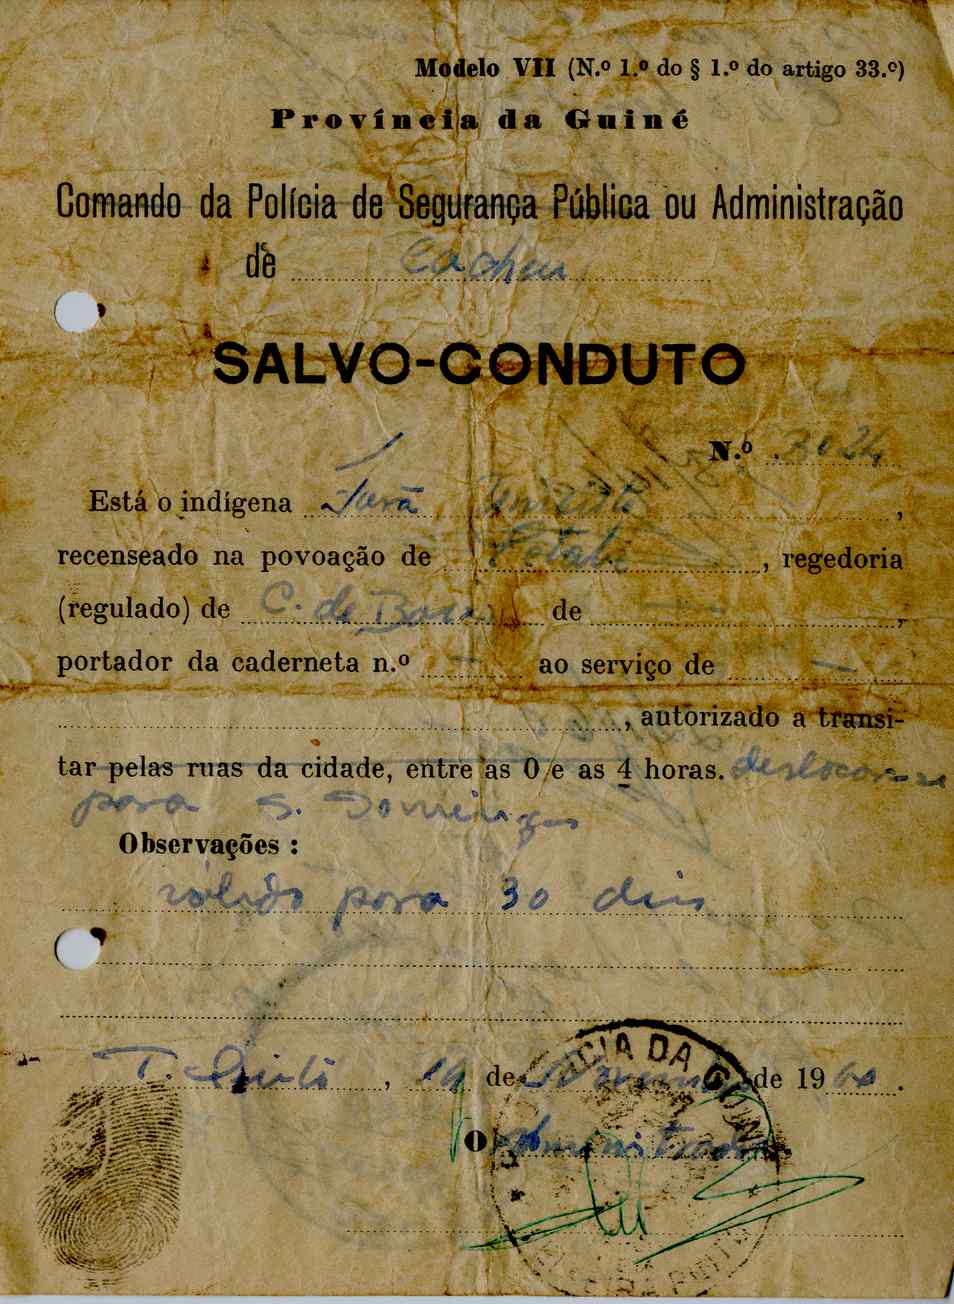 Modelo VII (N.º 1.º do § 1.º do artigo 33.º)
Província da Guiné
Comando da Polícia de Segurança Pública ou Administração
de Cacheu
SALVO-CONDUTO
N.º
Está o indígena ,
recenseado na povoação de , regedoria
(regulado) de C. de de ,
portador da caderneta n.º — ao serviço de —
, autorizado a transi-
tar pelas ruas da cidade, entre as 0 e as 4 horas. deslocar-se
para S. Domingos
Observações :
válido para 30 dias
T. Pinto, 19 de de 1960.
O Administrador
PROVÍNCIA DA GUINÉ